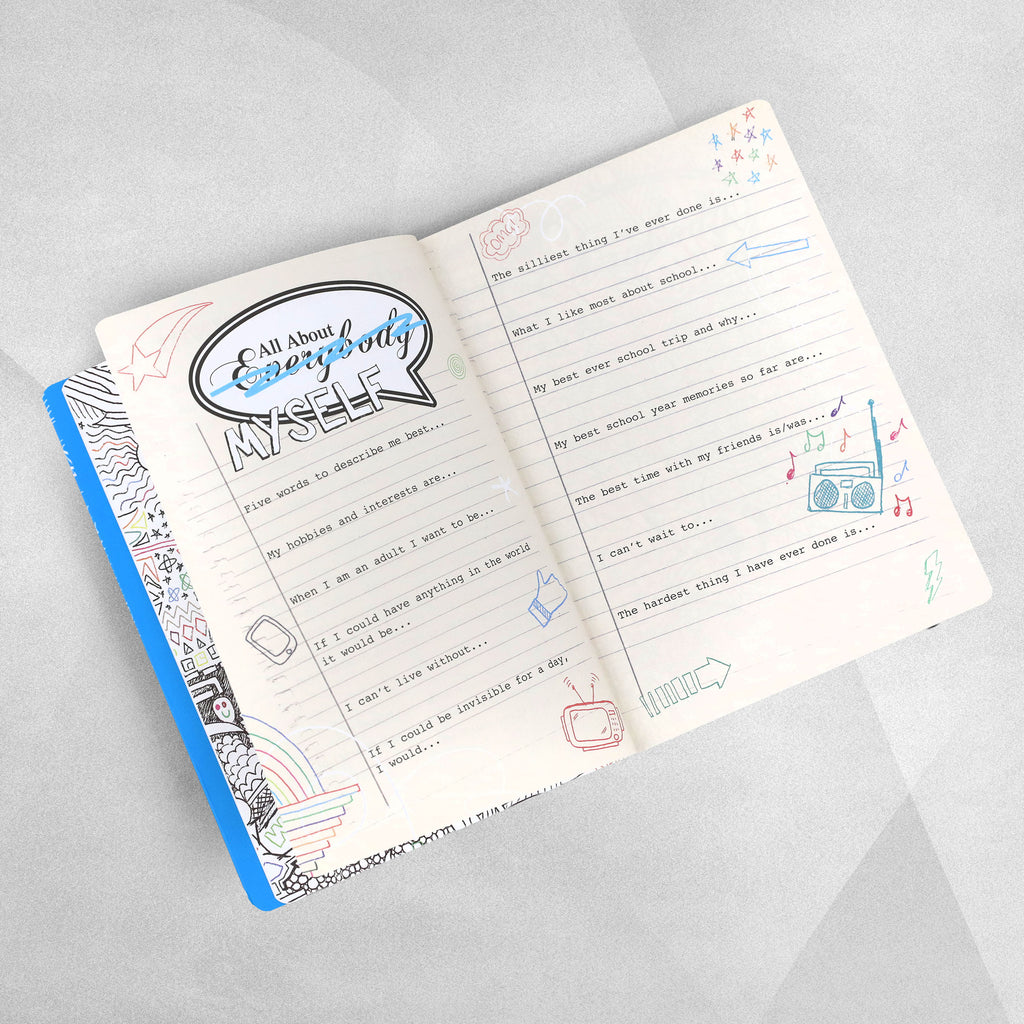 All About
Everybody
MYSELF
Five words to describe me best...
My hobbies and interests are...
When I am an adult I want to be...
If I could have anything in the world
it would be...
I can't live without...
If I could be invisible for a day,
I would...
OMG!
The silliest thing I've ever done is...
What I like most about school...
My best ever school trip and why...
My best school year memories so far are...
The best time with my friends is/was...
I can't wait to...
The hardest thing I have ever done is...